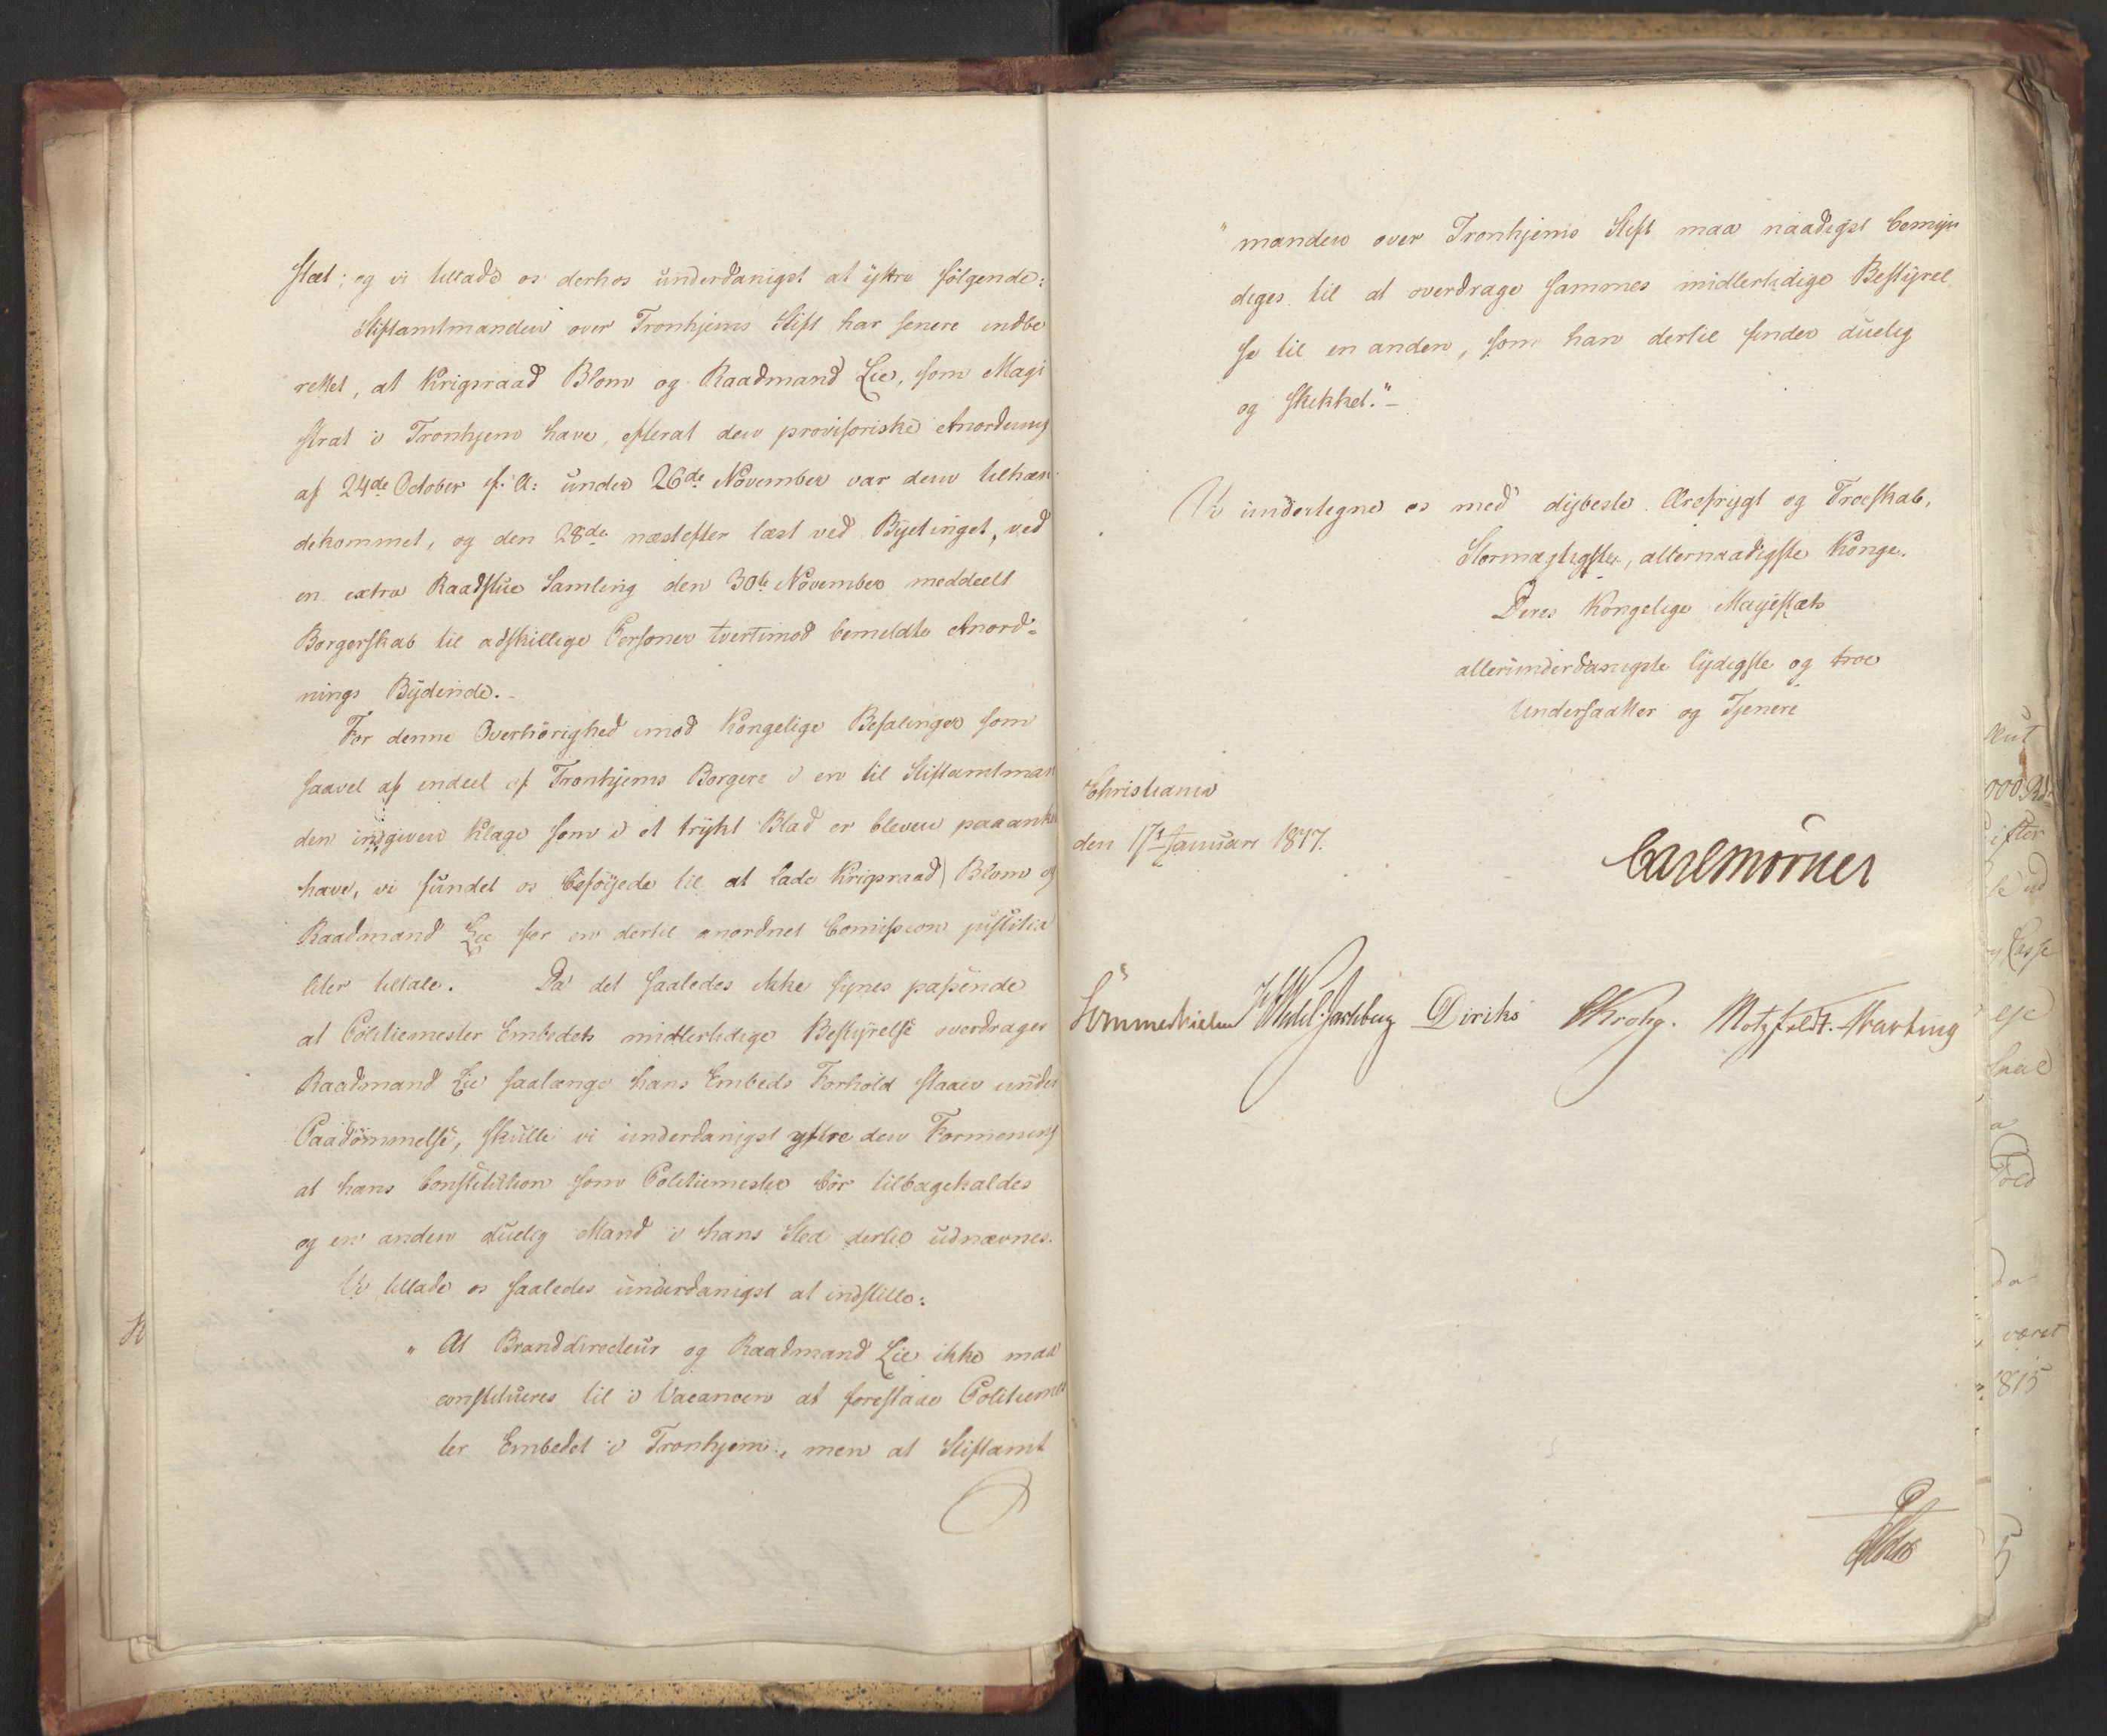 stæt; og vi tillade os derhos underdanigst at yttre følgende:
Stiftamtmanden over Tronhjems Stift har senere indbe
rettet, at Krigsraad Blom og Raadmand Lie, som Magi
strat i Tronhjem have, efterat den provisoriske Anordning
af 24de October f. A: under 26de November var dem tilhæn
dekommet, og den 28de næstefter læst ved Byetinget, ved
en extra Raadstue Samling den 30te November meddeelt
Borgerskab til adskillige Personer tvertimod bemeldte Anord-
nings Bydende.
For denne Overhörighed imod Kongelige Befalinger som
saavel af endeel af Tronhjems Borgere i en til Stiftamtman
den indgiven Klage som i et trykt Blad er bleven paaanket
have, vi fundet os beföiede til at lade Krigsraad Blom og
Raadmand Lie for en dertil anordnet Comission justitia
liter tiltale. Da det saaledes ikke synes passende
at Politiemester Embedets midlertidige Bestyrelse overdrages
Raadmand Lie saalænge hans Embeds Forhold staaer under
Paadömmelse, skulle vi underdanigst yttre den Formening
at hans Constitution som Politiemester bör tilbagekaldes
og en anden duelig Mand i hans Sted dertil udnævnes.
Vi tillade os saaledes underdanigst at indstille:
" At Branddirecteur og Raadmand Lie ikke maa
constitueres til i Vacancen at forestaae Politiemes
ter Embedet i Tronhjem, men at Stiftamt
" manden over Tronhjems Stift maa naadigst bemyn
diges til at overdrage sammes midlertidige Bestyrel
se til en anden, som han dertil finder duelig
og skikket." -
Vi undertegne os med dybeste Ærefrygt og Troeskab,
Stormægtigste, allernaadigste Konge.
Deres Kongelige Majestæts
allerunderdanigste lydigste og troe
Undersaatter og Tjenere
Christiania
den 17de Januari 1817.
Carl Mörner
Sommerhielm Wedel-Jarlsberg Diriks CKrohg. Motzfeldt.